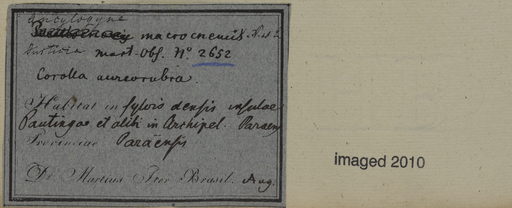 Ancylogyne
macrocnemis N. ab E.
Mart. Obs. No. 2652
Corolla aureorubra
Habitat in sylvis densis insulae
Pautingae et alibi in Archipel. Paraen
Provinciae Paraënsis
Dr. Martius Iter Brasil. Aug.
imaged 2010